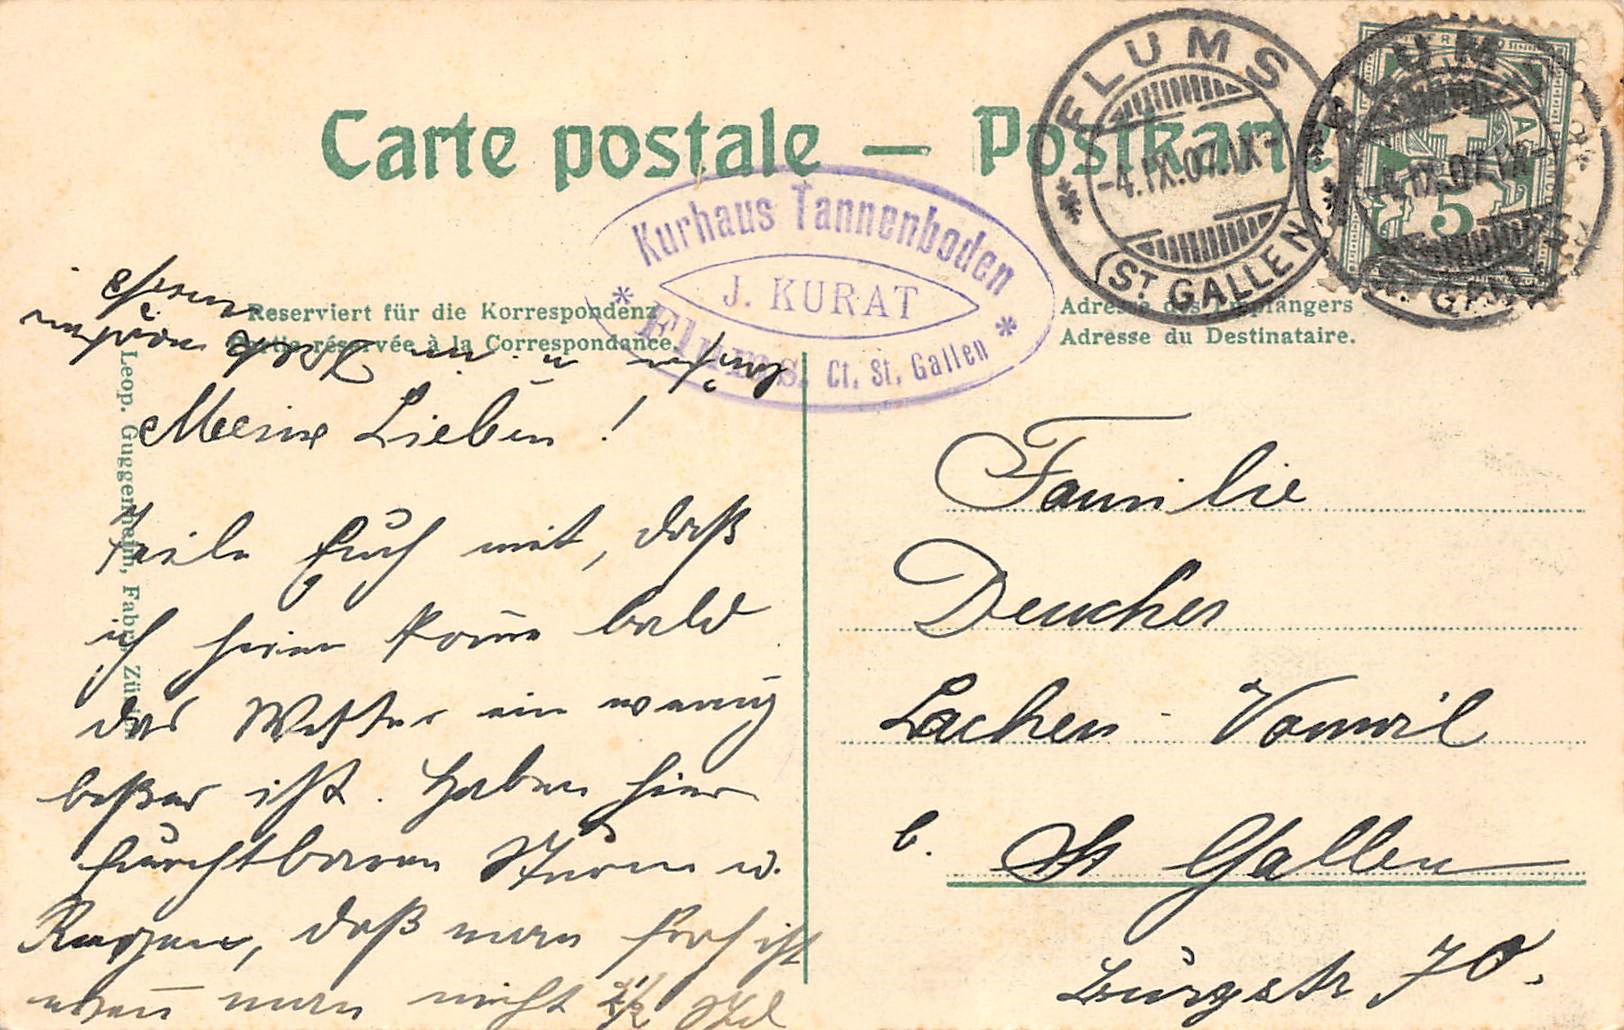 Carte postale — Postkarte
FLUMS
-4.IX.07.IX-
(ST. GALLEN)
FLUMS
-4.IX.07.IX-
(ST. GALLEN)
5
Kurhaus Tannenboden
J. KURAT
* Flums. Ct. St. Gallen *
Reserviert für die Korrespondenz
Partie réservée à la Correspondance.
Adresse des Empfängers
Adresse du Destinataire.
Leop. Guggenheim, Fabr., Zürich
Meine Lieben!
Teile Euch mit, daß
ich heim komme bald
das Wetter ein wenig
beßer ist. Haben hier
furchtbaren Sturm u.
Regen, daß man froh ist
wenn man nicht 1/2 Std
Familie
Deucher
Lachen-Vonwil
b. St Gallen
Burgstr 70.